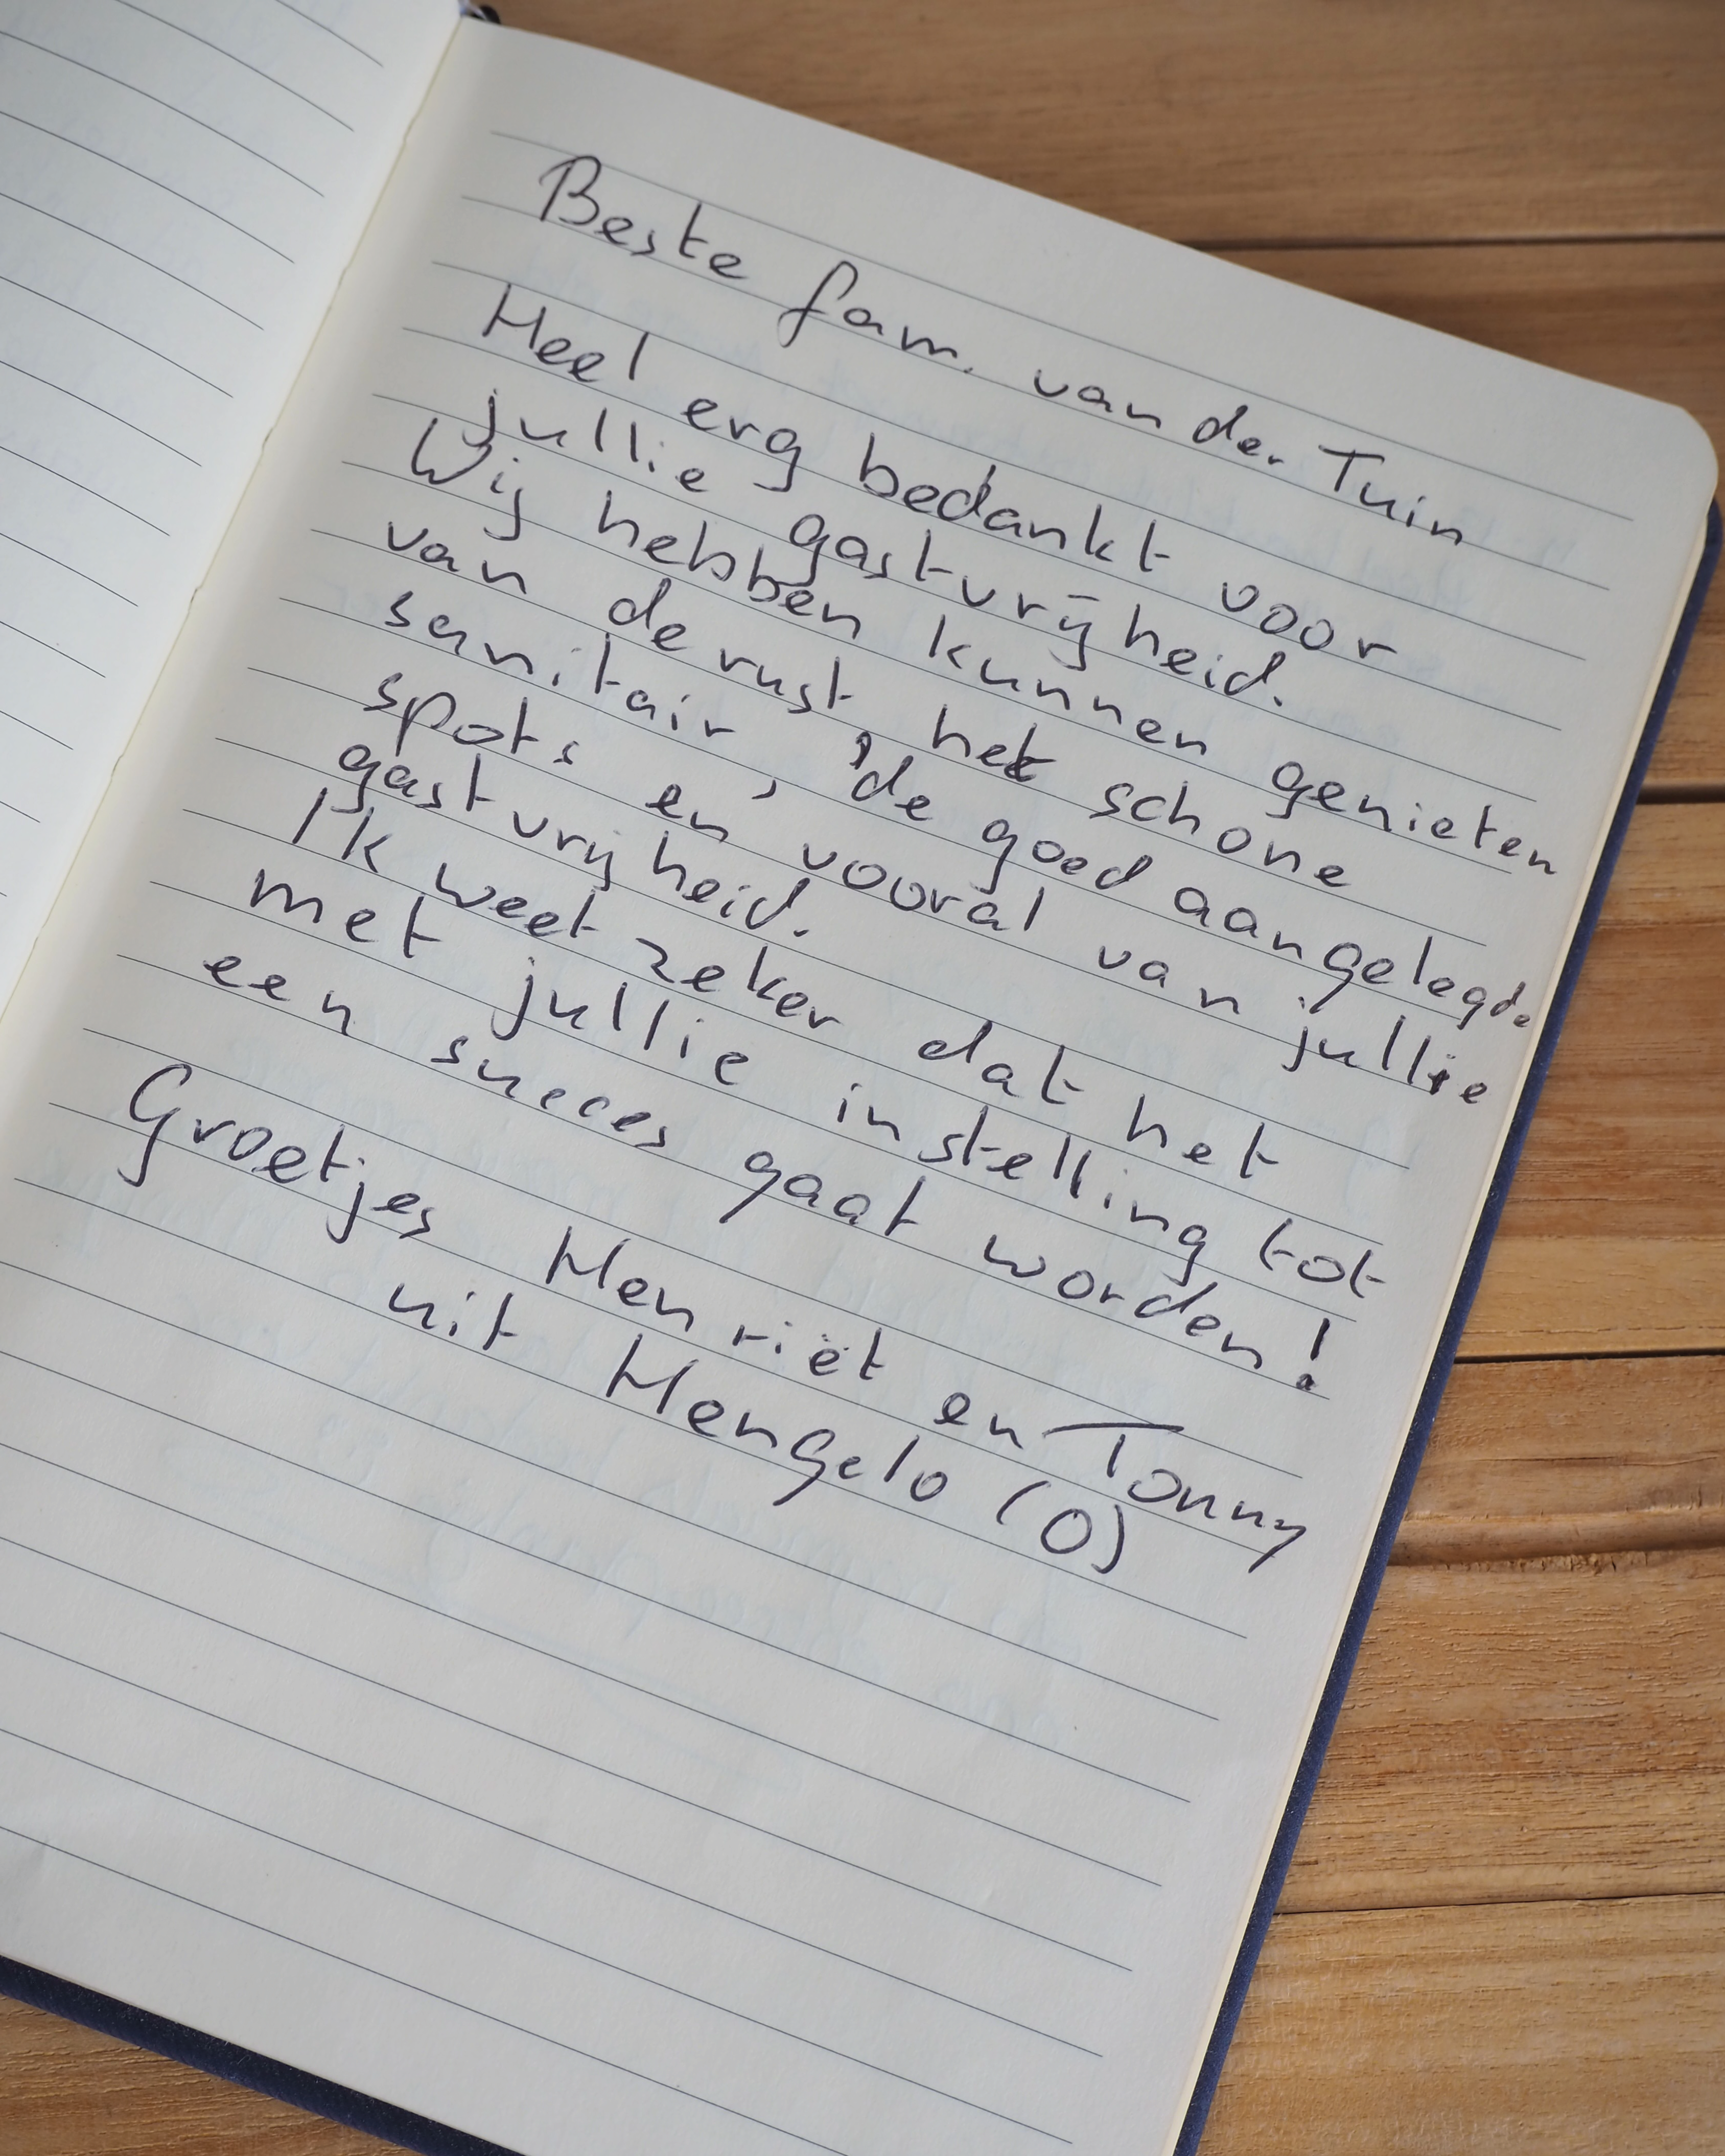 Beste fam. van der Tuin
Heel erg bedankt voor
jullie gastvrijheid.
Wij hebben kunnen genieten
van de rust het schone
sanitair, de goed aangelegde
spots en vooral van jullie
gastvrijheid.
Ik weet zeker dat het
met jullie instelling tot
een succes gaat worden!
Groetjes Henriët en Tonny
uit Hengelo (O)